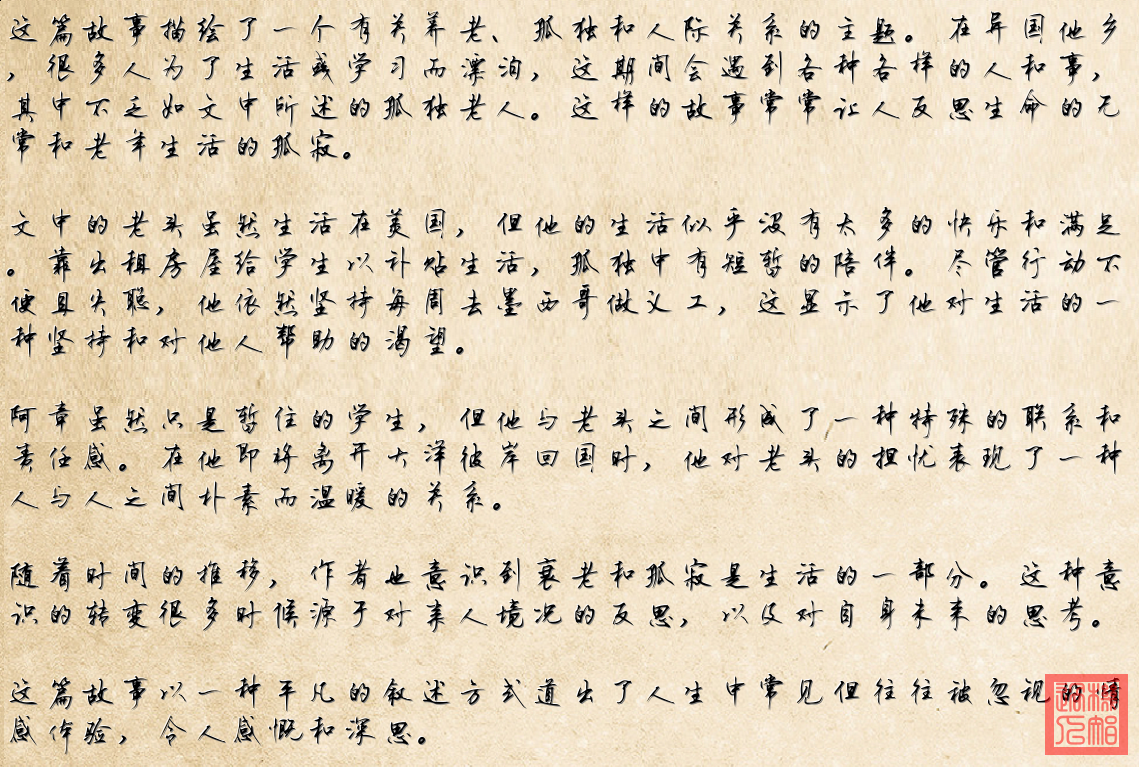 这篇故事描绘了一个有关养老、孤独和人际关系的主题。在异国他乡
，很多人为了生活或学习而漂泊，这期间会遇到各种各样的人和事，
其中不乏如文中所述的孤独老人。这样的故事常常让人反思生命的无
常和老年生活的孤寂。
文中的老头虽然生活在美国，但他的生活似乎没有太多的快乐和满足
。靠出租房屋给学生以补贴生活，孤独中有短暂的陪伴。尽管行动不
便且失聪，他依然坚持每周去墨西哥做义工，这显示了他对生活的一
种坚持和对他人帮助的渴望。
阿章虽然只是暂住的学生，但他与老头之间形成了一种特殊的联系和
责任感。在他即将离开大洋彼岸回国时，他对老头的担忧表现了一种
人与人之间朴素而温暖的关系。
随着时间的推移，作者也意识到衰老和孤寂是生活的一部分。这种意
识的转变很多时候源于对亲人境况的反思，以及对自身未来的思考。
这篇故事以一种平凡的叙述方式道出了人生中常见但往往被忽视的情
感体验，令人感慨和深思。